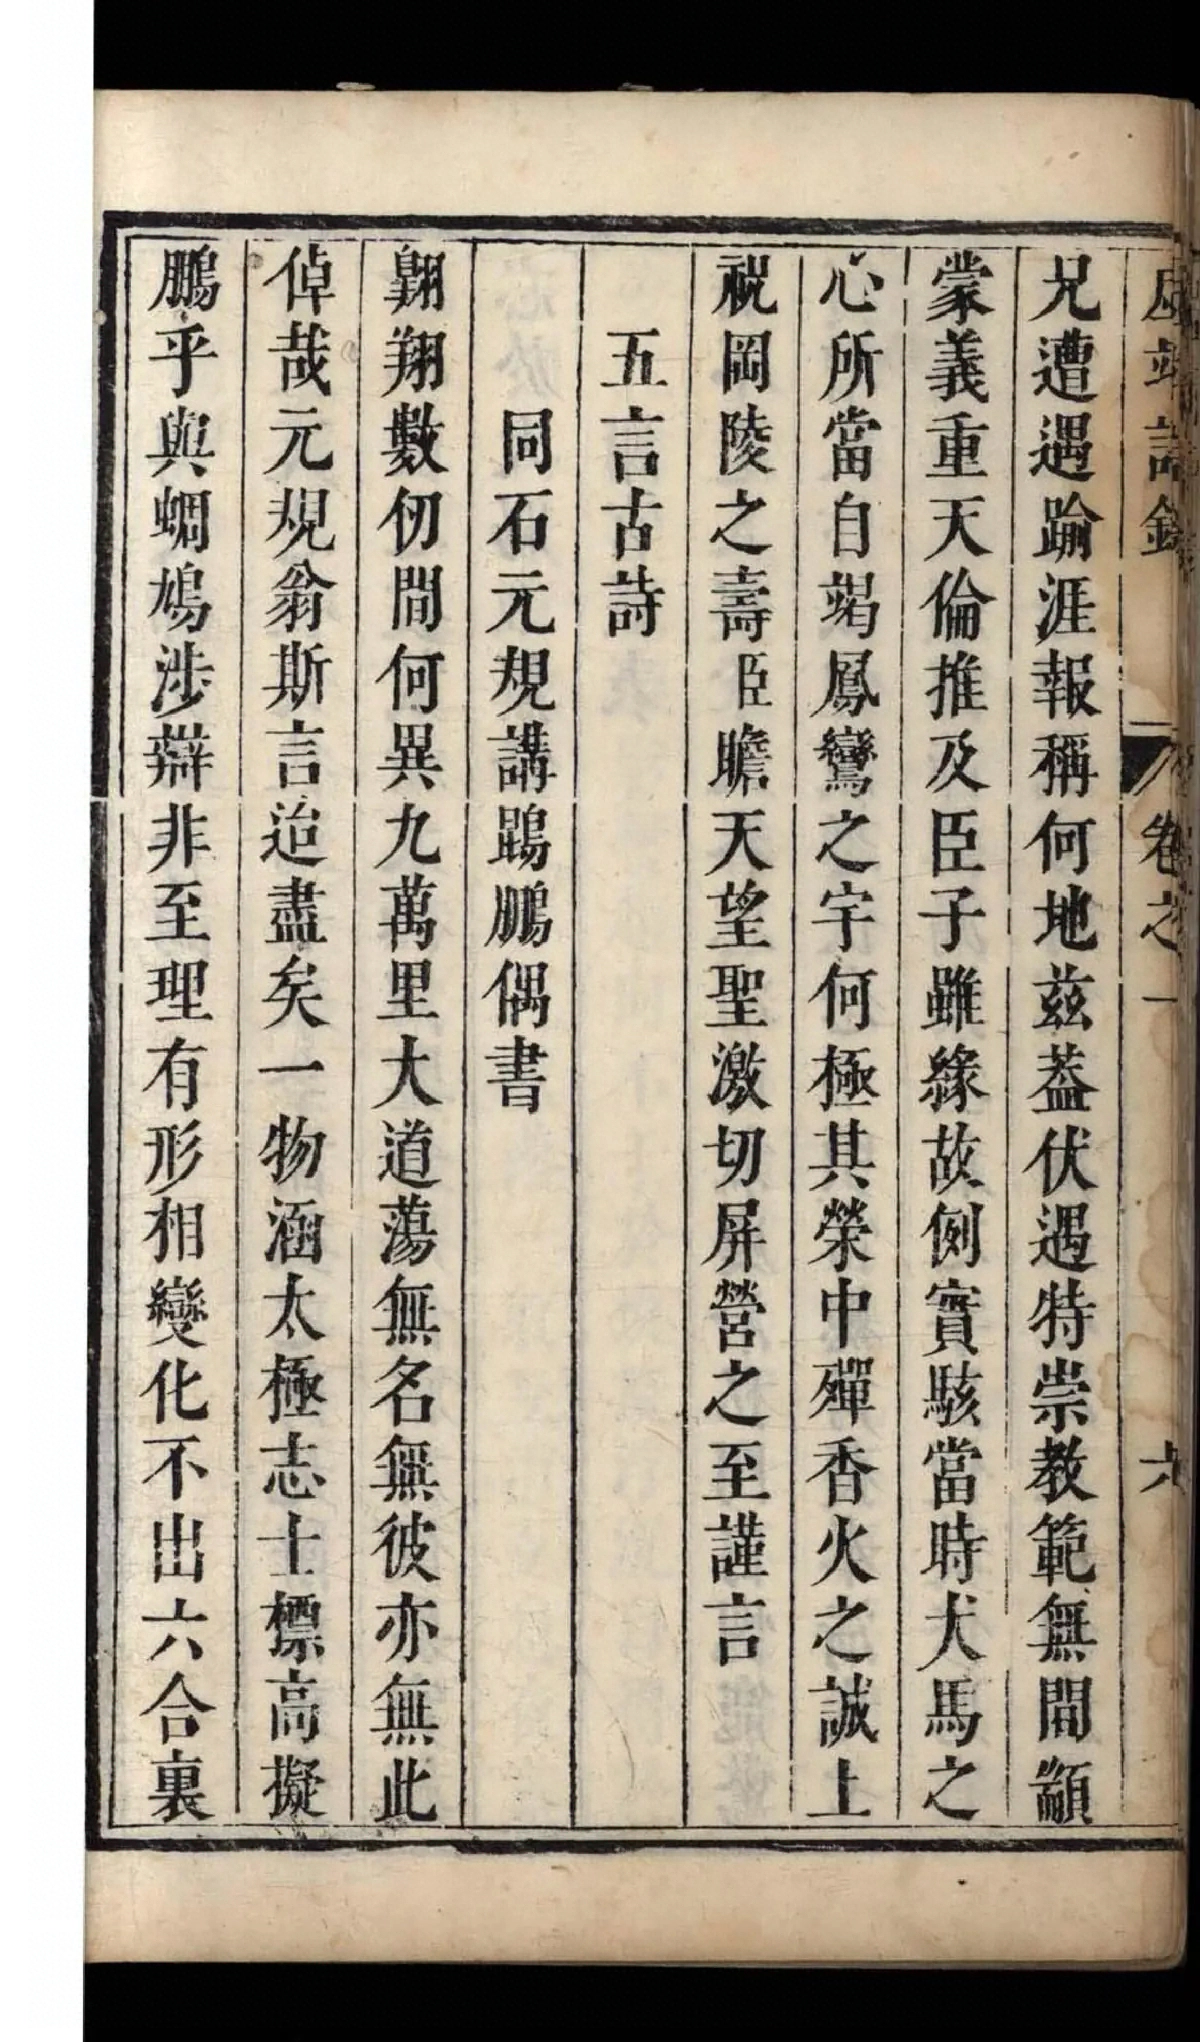 卷之一
六
兄遭遇踰涯報稱何地茲葢伏遇特崇教範無間顓
蒙義重天倫推及臣子雖緣故例實駭當時犬馬之
心所當自竭鳳鸞之宇何極其榮中殫香火之誠上
祝岡陵之壽臣瞻天望聖激切屏營之至謹言
五言古詩
同石元規講鷃鵬偶書
翱翔數仞間何異九萬里大道蕩無名無彼亦無此
倬哉元規翁斯言迨盡矣一物涵太極志士標高擬
鵬乎與蜩鳩涉辯非至理有形相變化不出六合裏